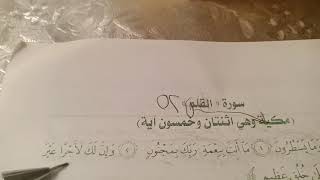 سورة « القلم » ٥٢
(مكية وهي اثنتان وخمسون آية)
وَمَا يَسْطُرُونَ ۝١ مَا أَنْتَ بِنِعْمَةِ رَبِّكَ بِمَجْنُونٍ ۝٢ وَإِنَّ لَكَ لَأَجْرًا غَيْرَ
خُلُقٍ عَظِيمٍ